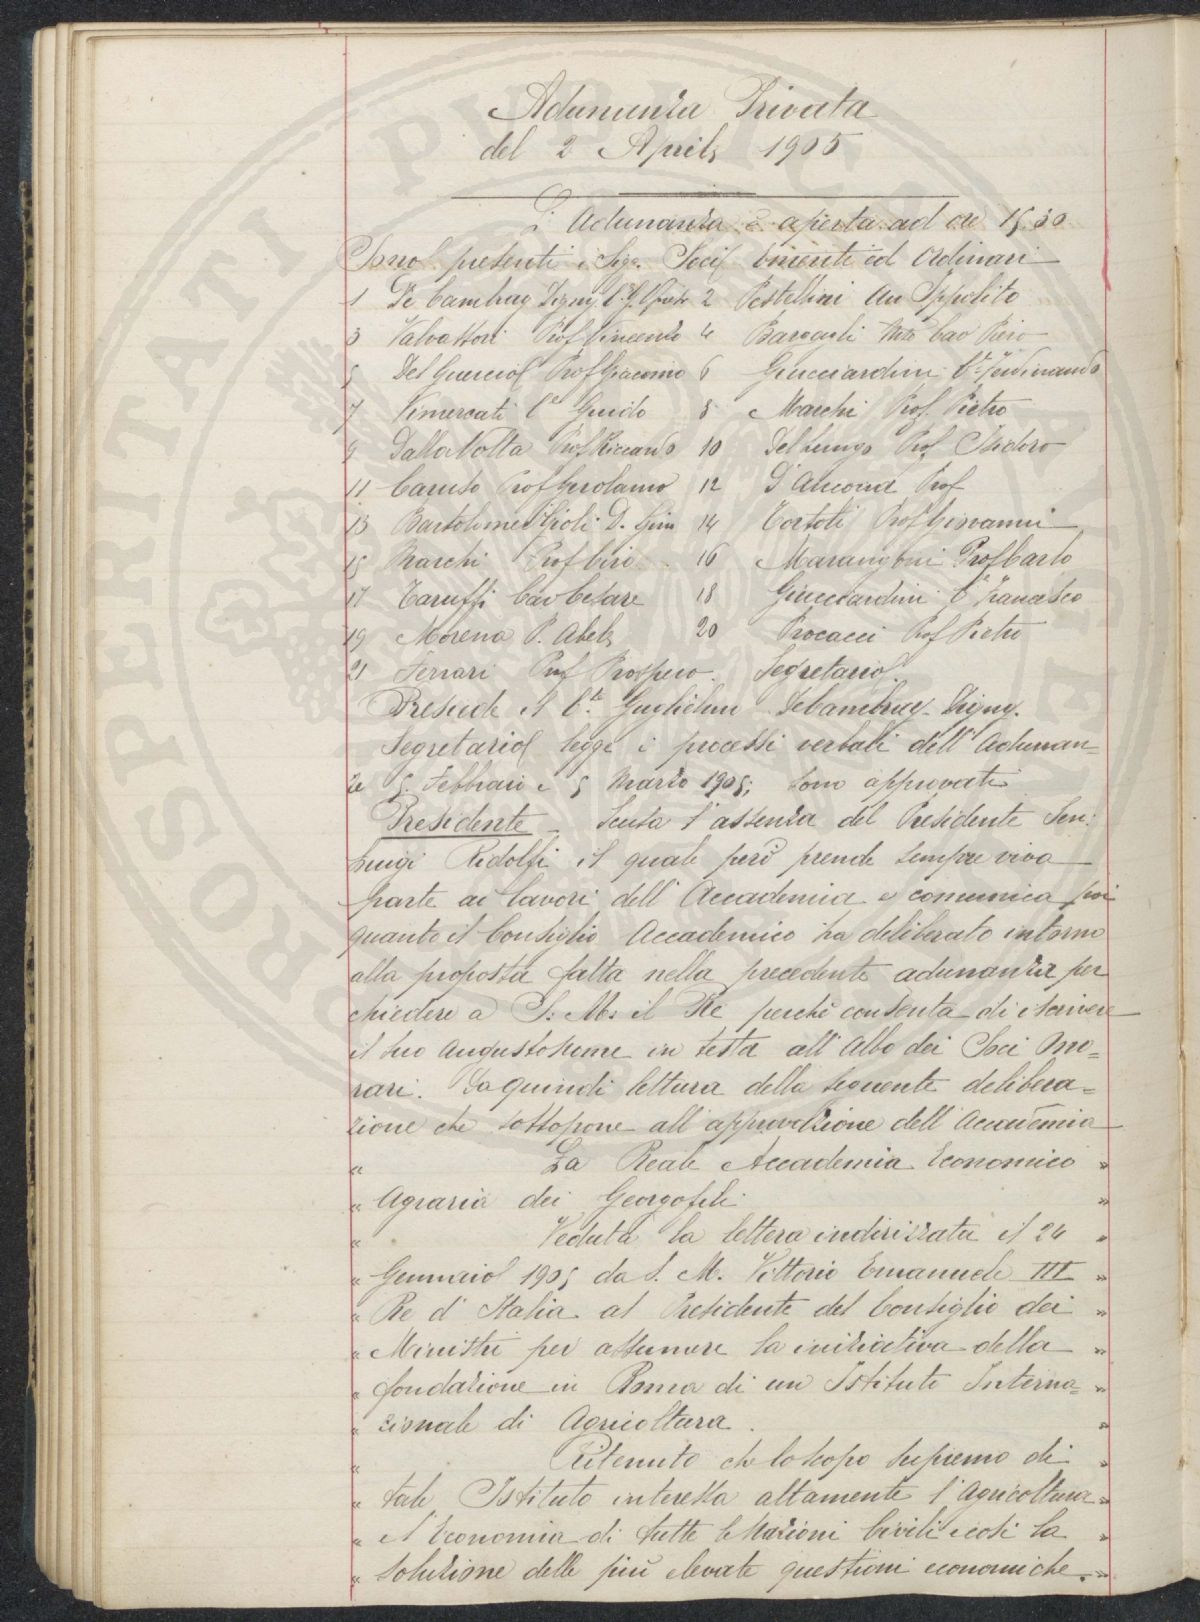 Adunanza Privata
del 2 Aprile 1905
L'Adunanza è aperta ad ore 15,30
Sono presenti i Sigg. Socii Emeriti ed Ordinari
1 De Cambray Digny C.te Guglielmo 2 Pestellini Avv Ippolito
3 Valvassori Prof Vincenzo 4 Bargagli Cav Piero
5 Del Guercio Prof Giacomo 6 Guicciardini C.te Ferdinando
7 Vimercati C.te Guido 8 Marchi Prof. Pietro
9 Dalla Volta Prof Riccardo 10 Del Lungo Prof Isidoro
11 Caruso Prof Girolamo 12 D'Ancona Prof
13 Bartolomei Gioli D. Gino 14 Tortoli Prof Giovanni
15 Marchi Prof Ciro 16 Marangoni Prof Carlo
17 Taruffi Cav Cesare 18 Guicciardini C.te Francesco
19 Morena P. Abele 20 Procacci Prof Pietro
21 Ferrari Prof Prospero. Segretario.
Presiede il C.te Guglielmo De Cambray-Digny.
Segretario legge i processi verbali dell'Adunan=
ze 5. Febbraio e 5 Marzo 1905; sono approvati
Presidente - Scusa l'assenza del Presidente Sen:
Luigi Ridolfi il quale però prende sempre viva
parte ai lavori dell'Accademia e comunica poi
quanto il Consiglio Accademico ha deliberato intorno
alla proposta fatta nella precedente adunanza per
chiedere a S. M. il Re perchè consenta di iscrivere
il suo Augusto nome in testa all'Albo dei Soci Ono=
rari. Da quindi lettura della seguente delibera=
zione che sottopone all'approvazione dell'Accademia
" La Reale Accademia Economico "
" Agraria dei Georgofili "
" Veduta la lettera indirizzata il 24 "
" Gennaio 1905 da S. M. Vittorio Emanuele III "
" Re d'Italia al Presidente del Consiglio dei "
" Ministri per assumere la iniziativa della "
" fondazione in Roma di un Istituto Interna= "
" zionale di Agricoltura. "
" Ritenuto che lo scopo supremo di "
" tale Istituto interessa altamente l'Agricoltura "
" e l'Economia di tutte le Nazioni Civili e così la "
" soluzione delle più elevate questioni economiche. "
PROSPERITATI PUBLICAE